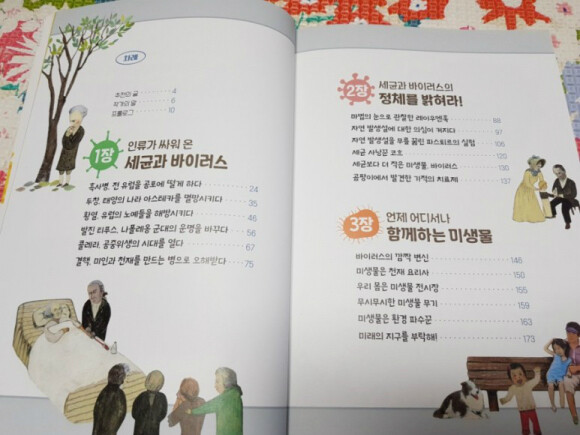 차례
추천의 글 4
작가의 말 6
프롤로그 10
1장 인류가 싸워 온
세균과 바이러스
흑사병, 전 유럽을 공포에 떨게 하다 24
두창, 태양의 나라 아스테카를 멸망시키다 35
황열, 유럽의 노예들을 해방시키다 46
발진 티푸스, 나폴레옹 군대의 운명을 바꾸다 56
콜레라, 공중위생의 시대를 열다 67
결핵, 미인과 천재를 만드는 병으로 오해받다 75
2장 세균과 바이러스의
정체를 밝혀라!
마법의 눈으로 관찰한 레이우엔훅 88
자연 발생설에 대한 의심이 커지다 97
자연 발생설을 무릎 꿇린 파스퇴르의 실험 106
세균 사냥꾼 코흐 120
세균보다 더 작은 미생물, 바이러스 130
곰팡이에서 발견한 기적의 치료제 137
3장 언제 어디서나
함께하는 미생물
바이러스의 깜짝 변신 146
미생물은 천재 요리사 150
우리 몸은 미생물 전시장 155
무시무시한 미생물 무기 159
미생물은 환경 파수꾼 163
미래의 지구를 부탁해! 173